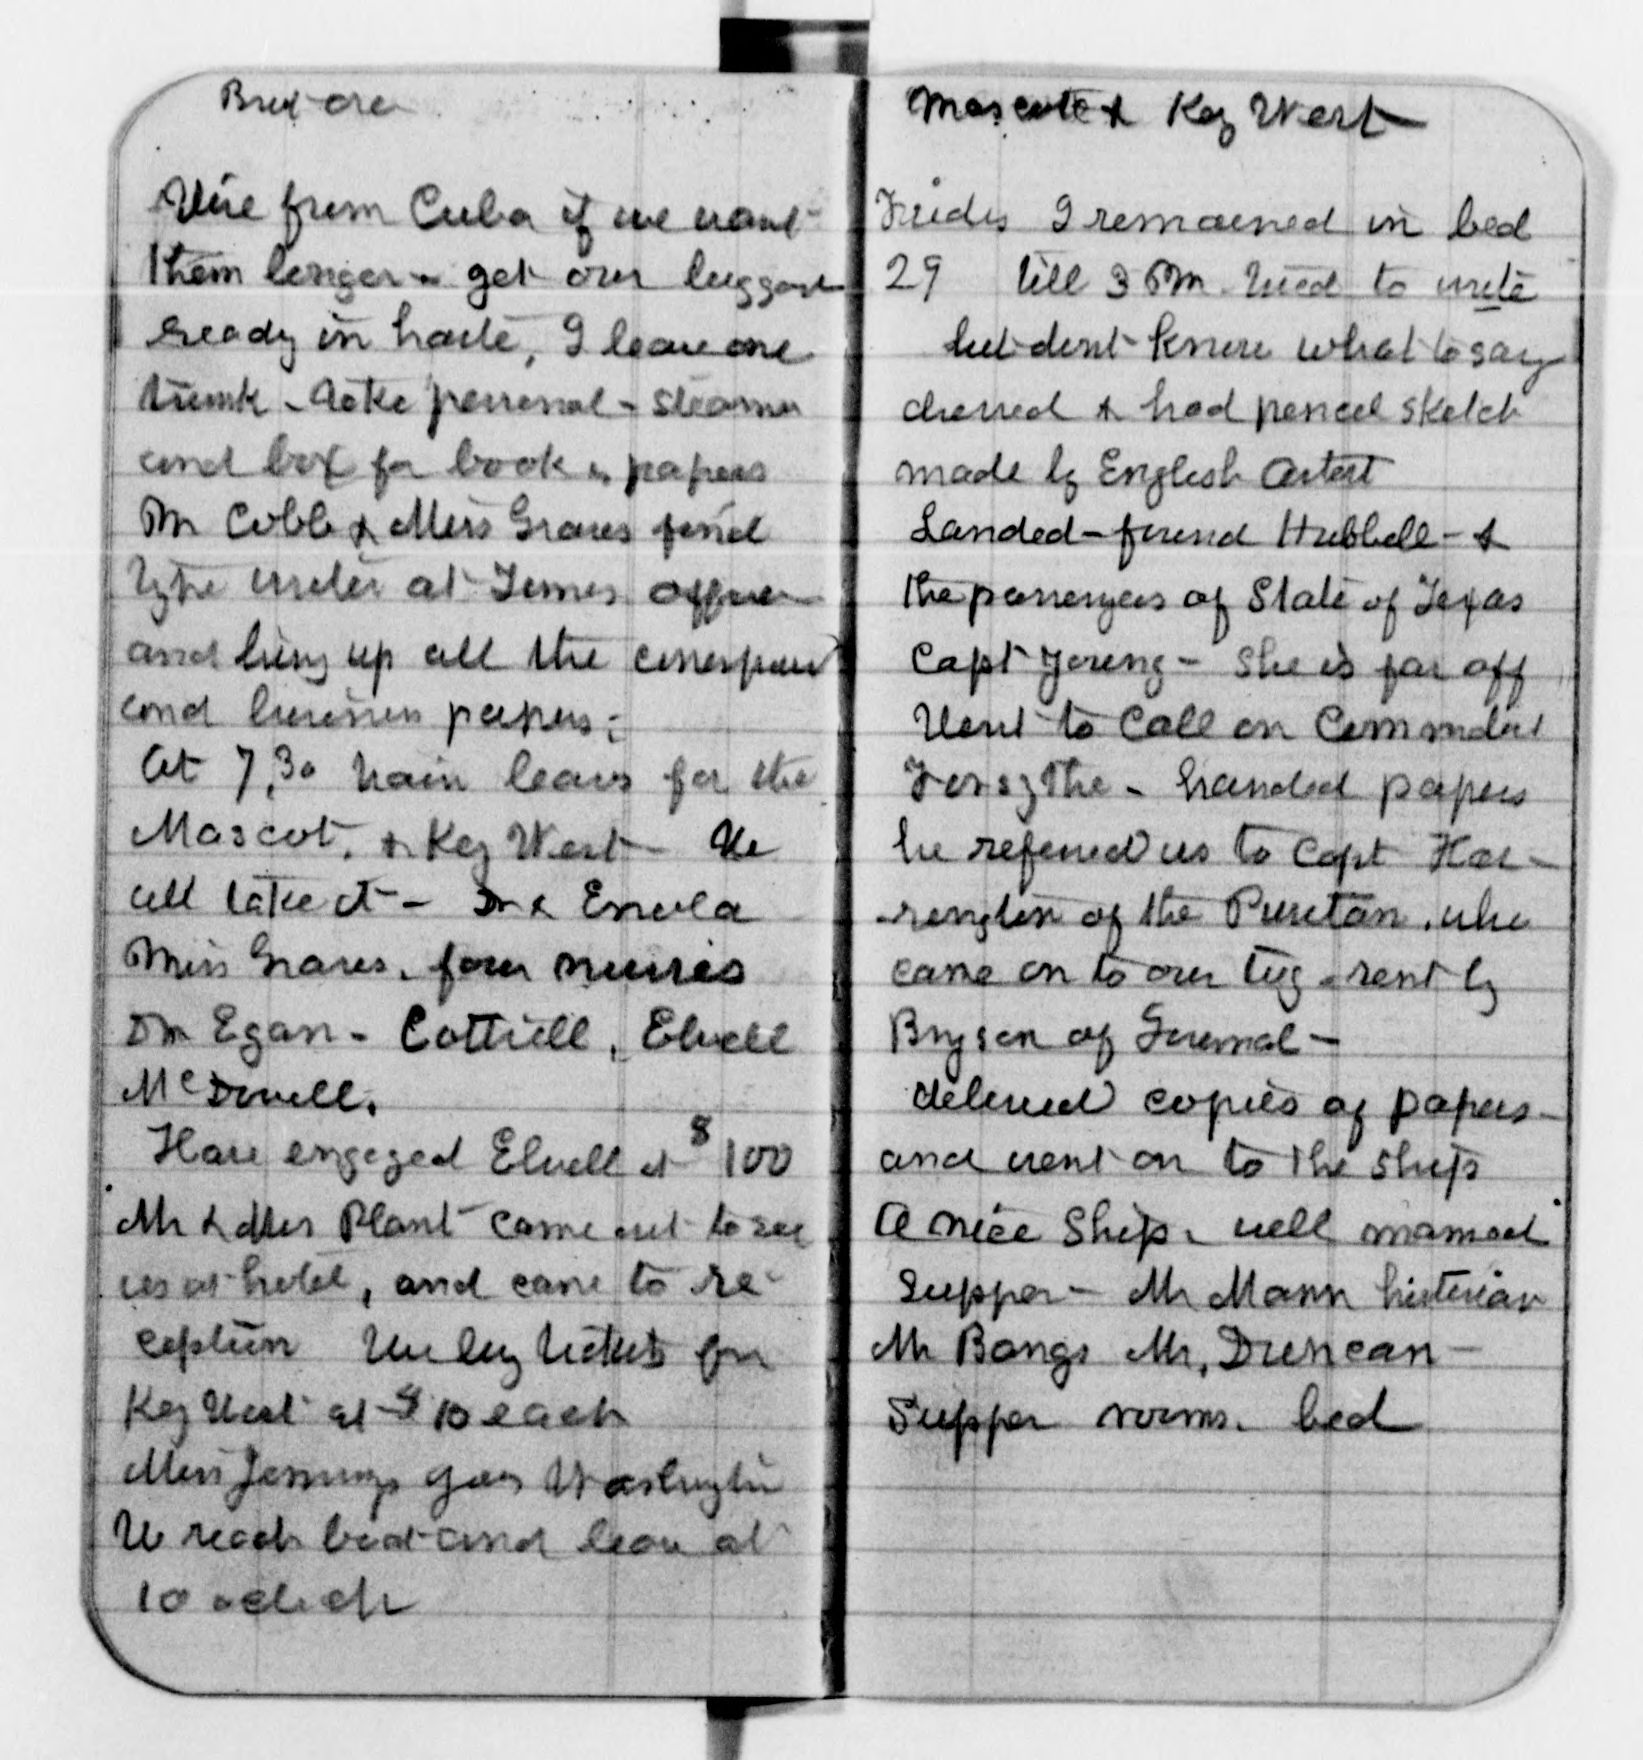 Wire from Cuba if we want
them longer - get our luggage
ready in haste, I leave one
trunk - take personal - steamer
and box for books, papers
Mr Cobb & Miss Graves find
type writer at Times office
and bring up all the
and business papers -
At 7,30 train leaves for the
Mascot, & Key West - We
all take it - Dr & Enola
Miss Graves, four nurses
Dr Egan - Cottrell, Elwell
McDowell.
Have engaged Elwell at $100
Mr & Mrs Plant came out to see
us at hotel, and came to re-
ception We buy tickets for
Key West at $10 each
Miss Jennings goes Washington
We reach boat and leave at
10 oclock
Mascotte & Key West
Friday I remained in bed
29 till 3 PM. tried to write
but dont know what to say
dressed & had pencil sketch
made by English Artist
Landed - found Hubbell - &
the passengers of State of Texas
Capt Young - She is far off
Went to Call on Commodore
Forsythe - handed papers
he referred us to Capt Har-
rington of the Puritan. who
came on to our tug - sent by
Bryson of Journal -
delivered copies of papers -
and went on to the ship
A nice Ship, well manned
Supper - Mr Mann historian
Mr Bangs Mr, Duncan -
Supper rooms. bed